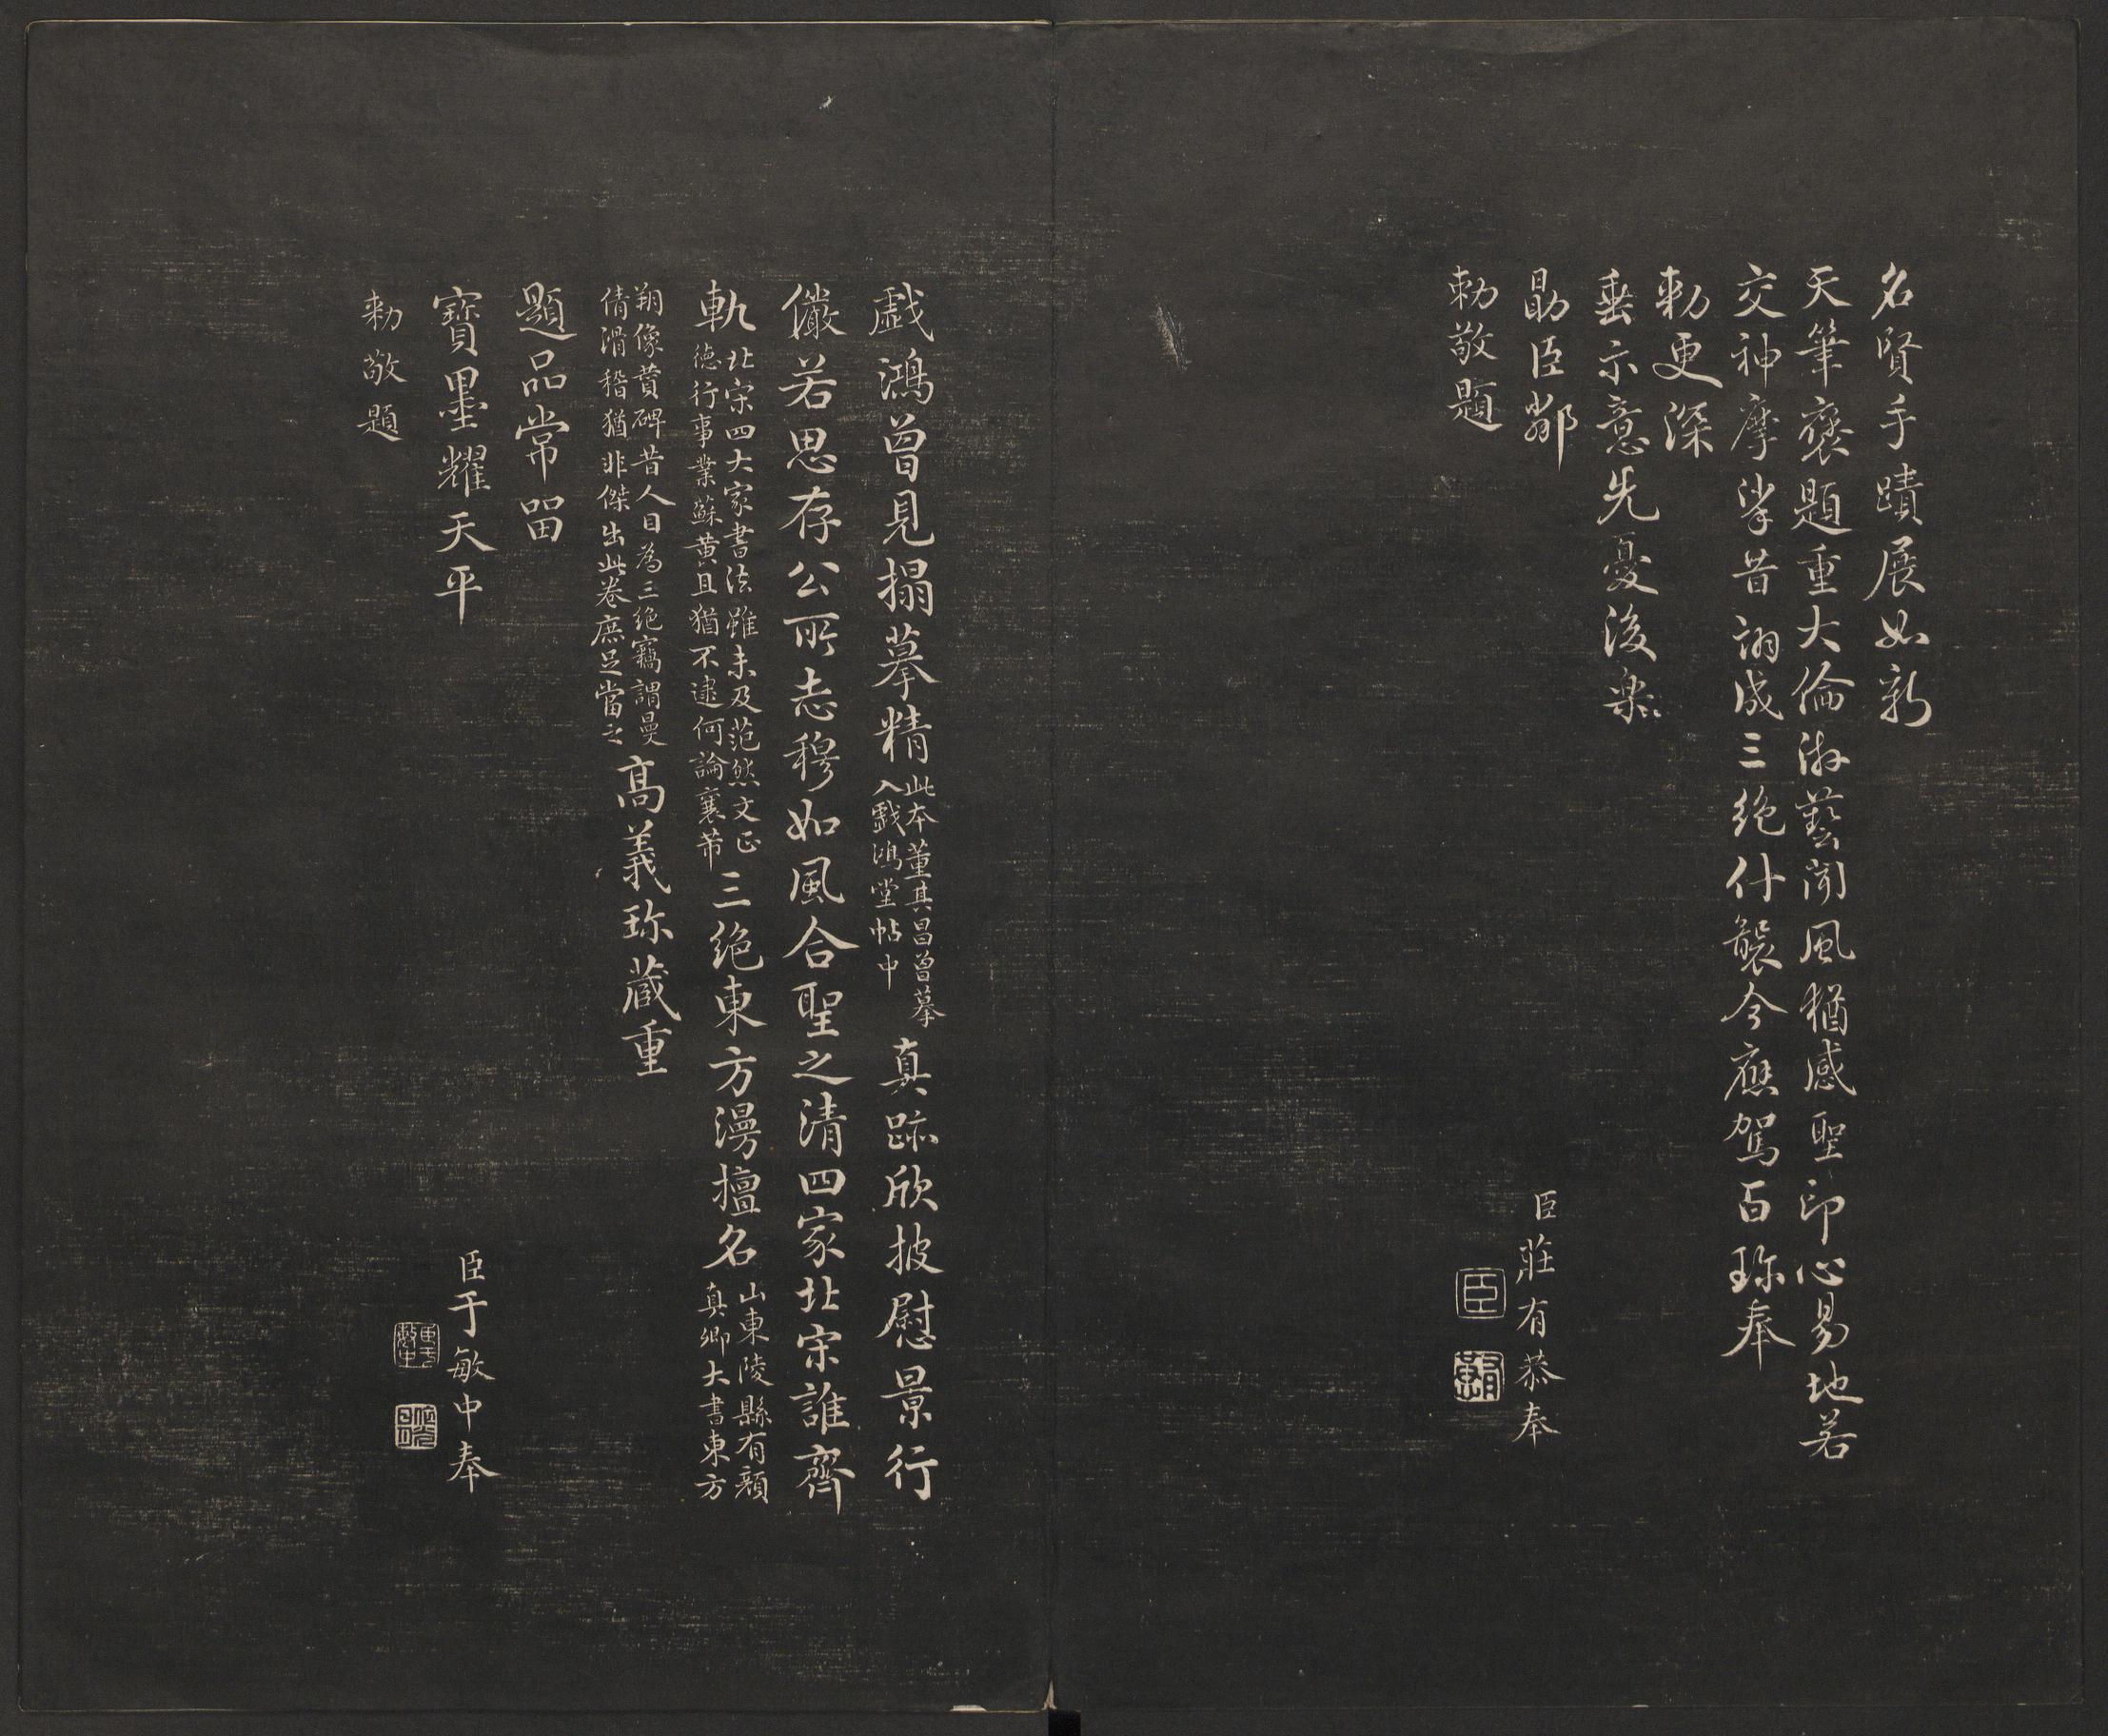 名賢手蹟展如新
天筆褒題重大倫游藝聞風猶感聖印心易地若
交神摩挲昔詡成三絶什襲今應駕百珎奉
勅更深
垂示意先憂後樂
勗臣鄰
臣莊有恭奉
勅敬題
臣
戲鴻曾見搨摹精
此本董其昌曾摹
入戲鴻堂帖中
真跡欣披慰景行
儼若思存公所志穆如風合聖之清四家北宋誰齊
軌
北宋四大家書法雖未及范然文正
德行事業蘇黄且猶不逮何論襄芾
三絶東方漫擅名
山東陵縣有顔
真卿大書東方
朔像賛碑昔人目為三絶竊謂曼
倩滑稽猶非傑出此卷庶足當之
高義珎蔵重
題品常留
寶墨耀天平
臣于敏中奉
勅敬題